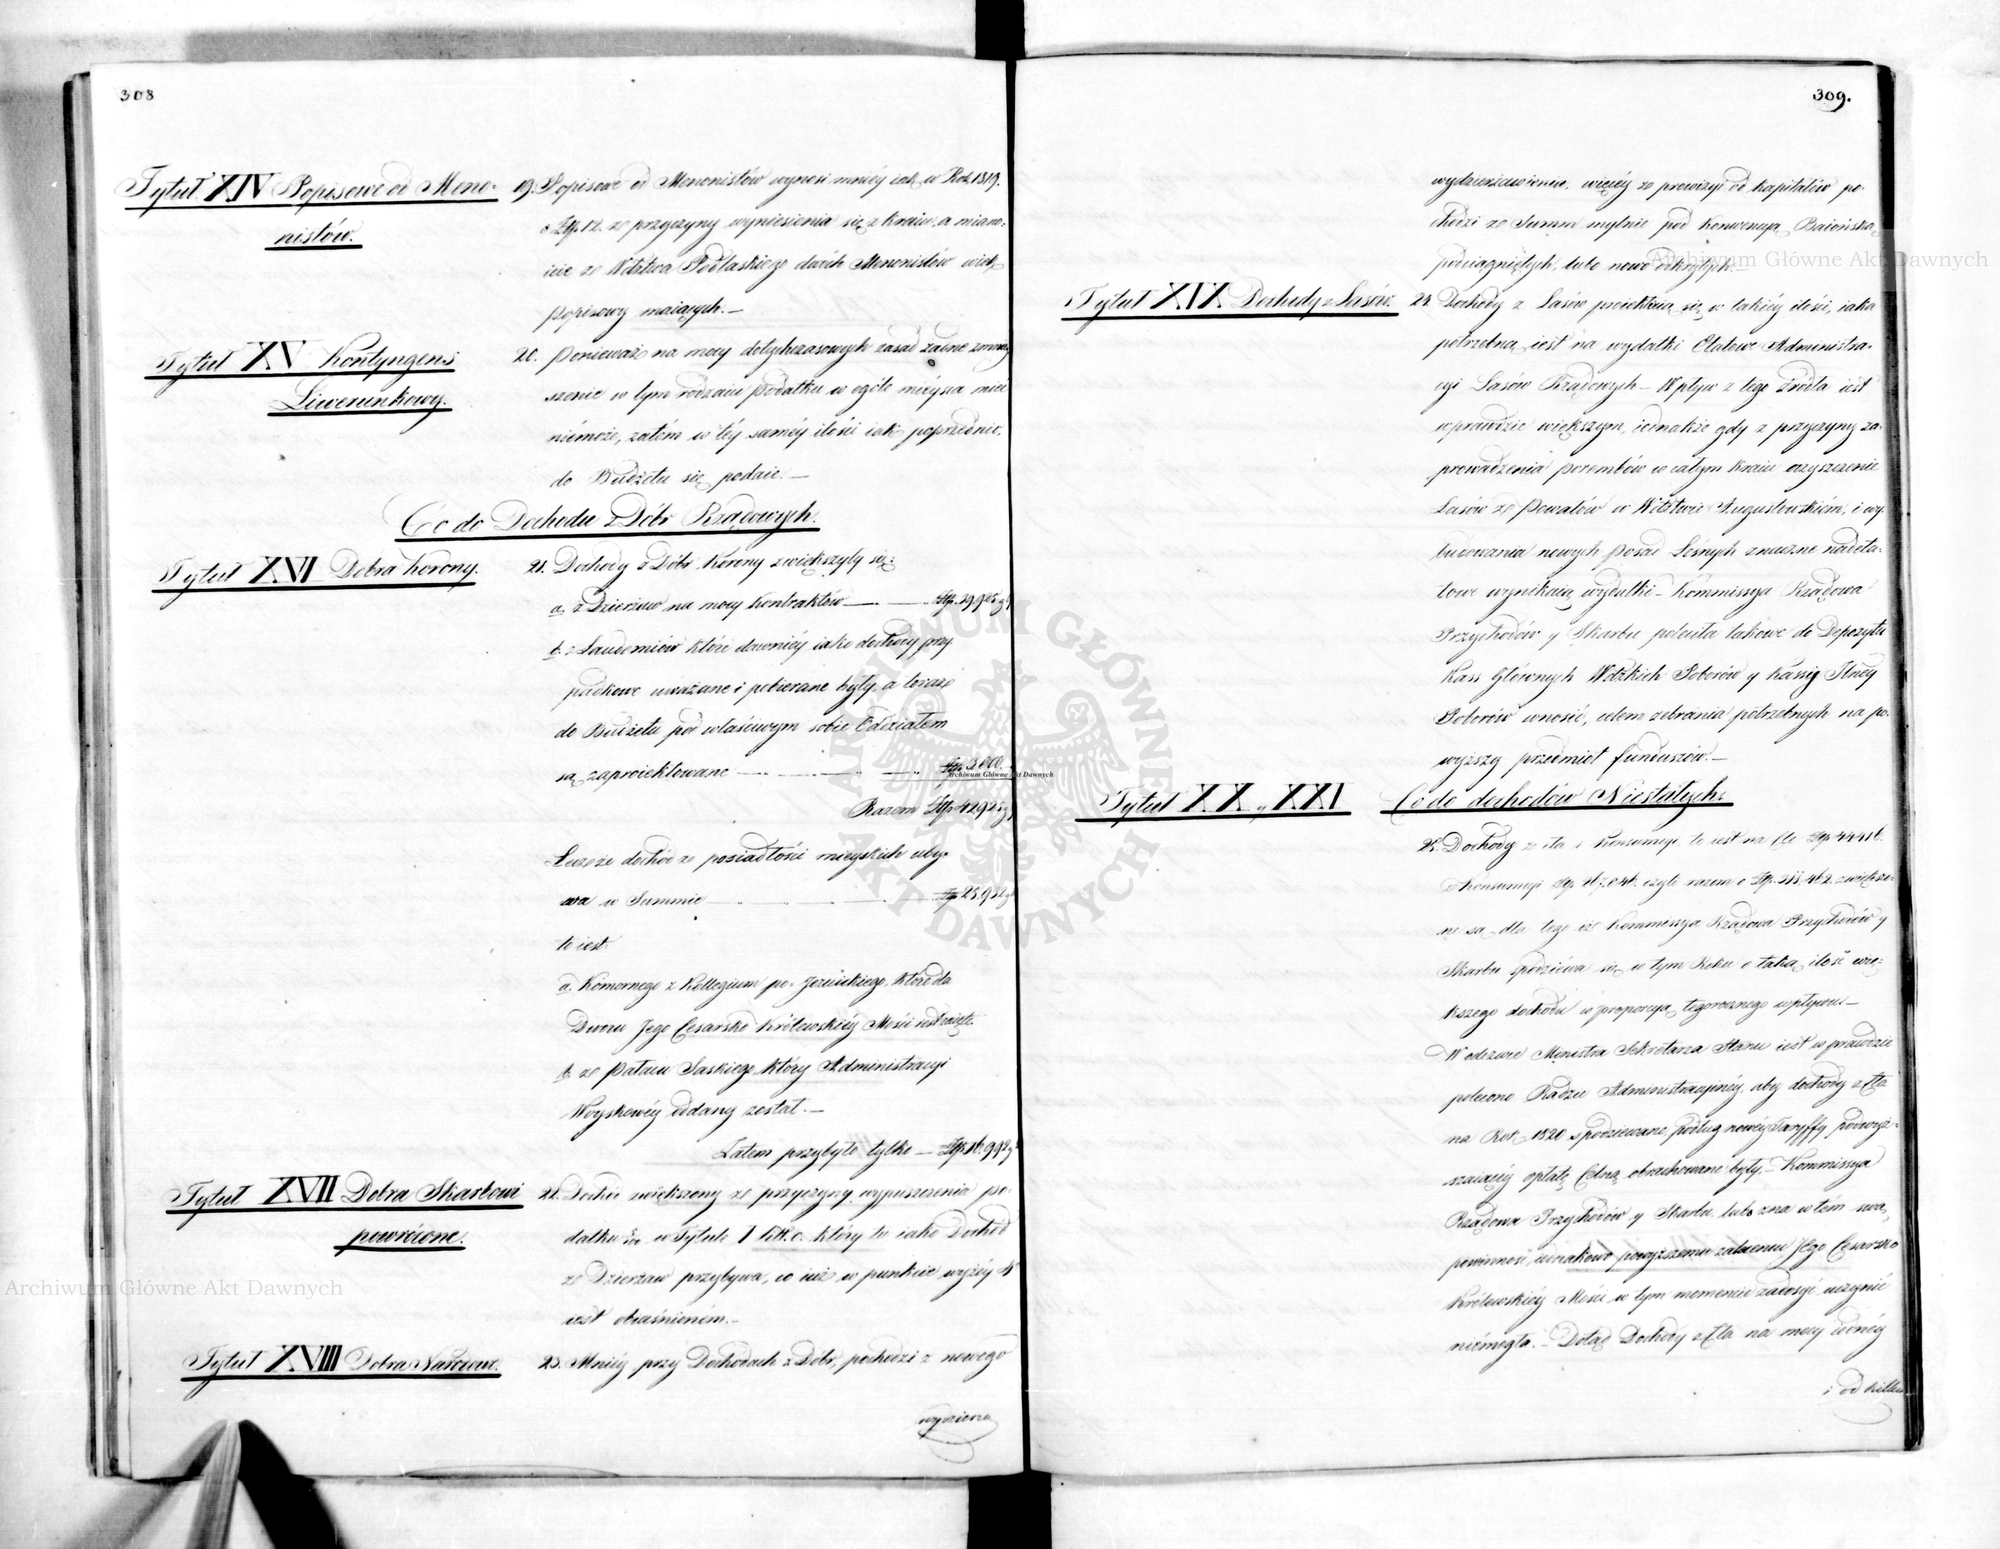 308
Tytuł XIV Popisowe od Meno-
nistów.
19. Popisowe od Menonistów wynosi mniéy iak w Rok. 1819.
o Złp. 12. ze przyczyny wyniesienia się z kraiu, a miano-
icie ze Wdztwa Podlaskiego dwóch Menonistów wiek
popisowy maiących. —
Tytuł XV Kontyngens
Liwerunkowy.
20. Ponieważ na mocy dotychczasowych zasad żadne zmniey
szenie w tym rodzaiu podatku w ogóle mieysca mieć
niemoże, zatém w téy saméy ilości iak poprzednio,
do Budżetu się podaie. —
Co do Dochodu z Dóbr Rządowych.
Tytuł XVI Dobra Korony.
21. Dochody z Dóbr Korony zwiększyły się:
a. z Dzierżaw na mocy kontraktów — Złp. 39,925 g
b. z Laudemiów które dawniéy iako dochody przy
padkowe uważane i pobierane były, a teraz
do Budżetu pod właściwym sobie Oddziałem
są zaproiektowane — Złp. 3,000.
Razem Złp. 42925 g
Lecz że dochód ze posiadłości mieyskich uby-
wa w Summie — Złp. 25,932 g
to iest:
a. Komornego z Kollegium po-Jezuickiego, które dla
Dworu Jego Cesarsko Królewskiéy Mości iest zajęte.
b. ze Pałacu Saskiego, który Administracyi
Woyskowéy oddany został. —
Zatem przybyło tylko — Złp. 16,992 g
Tytuł XVII Dobra Skarbowi
powrócone.
22. Dochód zwiększony ze przyczyny wypuszczenia po-
datku w Tytule I litt. c. który tu iako Dochód
ze Dzierżaw przybywa, co iuż w punkcie wyżéy 4
iest obiaśnioném. —
Tytuł XVIII Dobra Narodow.
23. Mniéy przy Dochodach z Dóbr, pochodzi z nowego
wydzierza
309.
wydzierżawienia, więcéy ze prowizyi od kapitałów po-
chodzi ze Summ mylnie pod Konwencyą Baiońską
pociągniętych, lub nowo odkrytych. —
Tytuł XIX Dochody z Lasów.
24. Dochody z Lasów proiektuią się w takiéy ilości, iaka
potrzebną iest na wydatki Etatowe Administra-
cyi Lasów Rządowych — Wpływ z tego źródła iest
wprawdzie większym, iednakże gdy z przyczyny za-
prowadzenia porembów w całym kraiu oczyszczenie
Lasów ze Powałów w Wdztwie Augustowskiém, i wy-
budowania nowych posad Leśnych znaczne nadeta-
towe wynikaią wydatki — Kommissya Rządowa
Przychodów y Skarbu poleciła takowe do Depozytu
Kass Głównych Wdzkich Poborów y Kassy Głney
Poborów wnosić, celem zebrania potrzebnych na po-
wyższy przedmiot funduszów. —
Tytuł XX y XXI
Co do dochodów Niestałych:
25. Dochody z cła i Konsumcyi, to iest na Cle Złp. 44416.
z Konsumcyi Złp. 267,046. czyli razem o Złp. 311,462. zwiększo-
ne są, dla tego iż Kommissya Rządowa Przychodów y
Skarbu spodziéwa się w tym Roku o taką ilość wię-
kszego dochodu w proporcyą tegorocznego wpływu —
W odezwie Ministra Sekretarza Stanu iest wprawdzie
polecono Radzie Administracyinéy, aby dochody z Cła
na Rok 1820 spodziewane, podług nowéy Taryffy podwyż-
szaiącéy opłatę Celną obrachowane były. — Kommissya
Rządowa Przychodów y Skarbu, lubo zna w tém swą
powinność, iednakowo powyższemu zaleceniu Jego Cesarsko
Królewskiéy Mości w tym momencie zadosyć uczynić
niémogła. — Dotąd Dochody z Cła na mocy iednéy
i od kilku
Archiwum Główne Akt Dawnych
Archiwum Główne Akt Dawnych
Archiwum Główne Akt Dawnych
ARCHIWUM GŁÓWNE AKT DAWNYCH